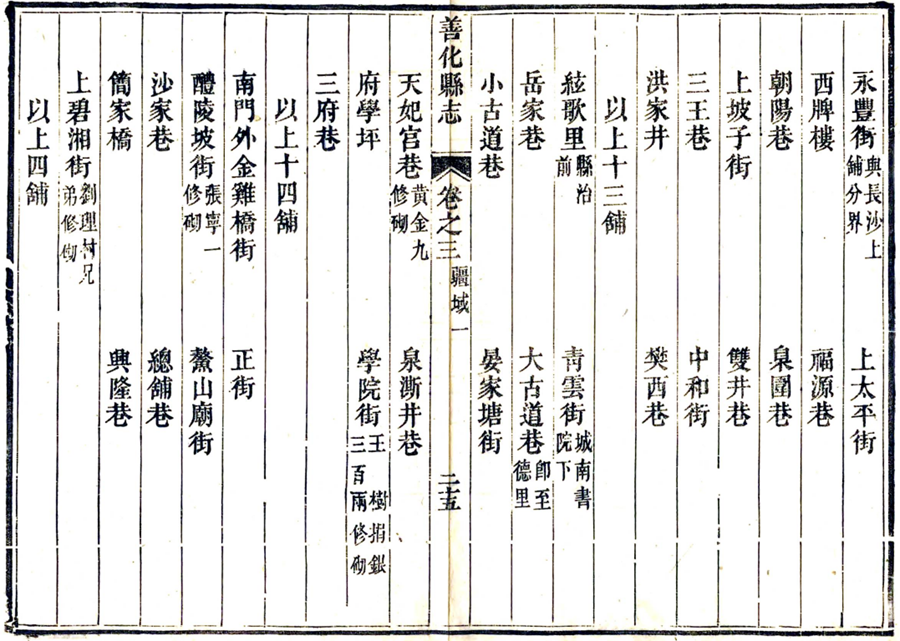 永豐街 與長沙上舖分界 上太平街
西牌樓 福源巷
朝陽巷 臬圍巷
上坡子街 雙井巷
三王巷 中和街
洪家井 樊西巷
以上十三舖
絃歌里 縣治前 青雲街 城南書院下
岳家巷 大古道巷 卽至德里
小古道巷 晏家塘街
善化縣志 卷之三 疆域一 二十五
天妃宮巷 黃金九修砌 泉澌井巷
府學坪 學院街 王 樹捐銀三百兩修砌
三府巷
以上十四舖
南門外金雞橋街 正街
醴陵坡街 張寧一修砌 鰲山廟街
沙家巷 總舖巷
簡家橋 興隆巷
上碧湘街 劉理 兄弟修砌
以上四舖